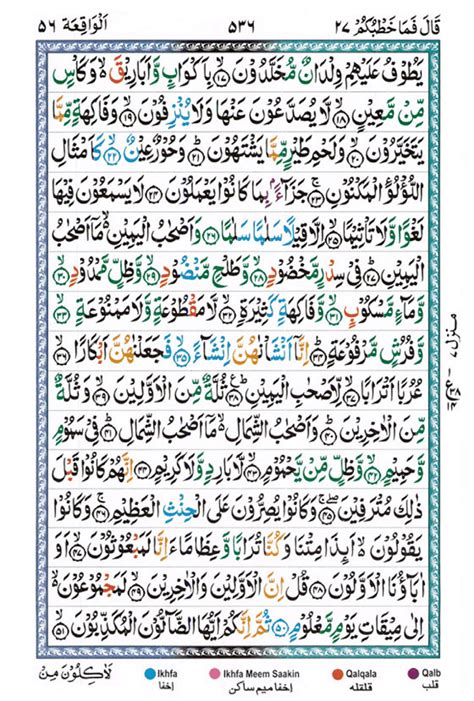 قَالَ فَمَا خَطْبُكُمْ ٢٧ ٥٣٦ اَلْوَاقِعَة ٥٦
يَطُوْفُ عَلَيْهِمْ وِلْدَانٌ مُّخَلَّدُوْنَ ۙ‏﴿۱۷﴾ بِاَكْوَابٍ وَّاَبَارِيْقَ ۙ وَكَاْسٍ
مِّنْ مَّعِيْنٍ ۙ‏﴿۱۸﴾ لَّا يُصَدَّعُوْنَ عَنْهَا وَلَا يُنْزِفُوْنَ ۙ‏﴿۱۹﴾ وَفَاكِهَةٍ مِّمَّا
يَتَخَيَّرُوْنَ ۙ‏﴿۲۰﴾ وَلَحْمِ طَيْرٍ مِّمَّا يَشْتَهُوْنَ ؕ‏﴿۲۱﴾ وَحُوْرٌ عِيْنٌ ۙ‏﴿۲۲﴾ كَاَمْثَالِ
اللُّؤْلُؤِ الْمَكْنُوْنِ ۚ‏﴿۲۳﴾ جَزَآءًۢ بِمَا كَانُوْا يَعْمَلُوْنَ ‏﴿۲۴﴾ لَا يَسْمَعُوْنَ فِيْهَا
لَغْوًا وَّلَا تَاْثِيْمًا ۙ‏﴿۲۵﴾ اِلَّا قِيْلًا سَلٰمًا سَلٰمًا ‏﴿۲۶﴾ وَاَصْحٰبُ الْيَمِيْنِ ۙ مَاۤ اَصْحٰبُ
الْيَمِيْنِ ؕ‏﴿۲۷﴾ فِيْ سِدْرٍ مَّخْضُوْدٍ ۙ‏﴿۲۸﴾ وَّطَلْحٍ مَّنْضُوْدٍ ۙ‏﴿۲۹﴾ وَّظِلٍّ مَّمْدُوْدٍ ۙ‏﴿۳۰﴾
وَّمَآءٍ مَّسْكُوْبٍ ۙ‏﴿۳۱﴾ وَّفَاكِهَةٍ كَثِيْرَةٍ ۙ‏﴿۳۲﴾ لَّا مَقْطُوْعَةٍ وَّلَا مَمْنُوْعَةٍ ۙ‏﴿۳۳﴾
وَّفُرُشٍ مَّرْفُوْعَةٍ ؕ‏﴿۳۴﴾ اِنَّاۤ اَنْشَاْنٰهُنَّ اِنْشَآءً ۙ‏﴿۳۵﴾ فَجَعَلْنٰهُنَّ اَبْكَارًا ۙ‏﴿۳۶﴾
عُرُبًا اَتْرَابًا ۙ‏﴿۳۷﴾ لِّاَصْحٰبِ الْيَمِيْنِ ؕ‏﴿۳۸﴾ ثُلَّةٌ مِّنَ الْاَوَّلِيْنَ ۙ‏﴿۳۹﴾ وَثُلَّةٌ
مِّنَ الْاٰخِرِيْنَ ؕ‏﴿۴۰﴾ وَاَصْحٰبُ الشِّمَالِ ۙ مَاۤ اَصْحٰبُ الشِّمَالِ ؕ‏﴿۴۱﴾ فِيْ سَمُوْمٍ
وَّحَمِيْمٍ ۙ‏﴿۴۲﴾ وَّظِلٍّ مِّنْ يَّحْمُوْمٍ ۙ‏﴿۴۳﴾ لَّا بَارِدٍ وَّلَا كَرِيْمٍ ‏﴿۴۴﴾ اِنَّهُمْ كَانُوْا قَبْلَ
ذٰلِكَ مُتْرَفِيْنَ ۚۖ‏﴿۴۵﴾ وَكَانُوْا يُصِرُّوْنَ عَلَى الْحِنْثِ الْعَظِيْمِ ۚ‏﴿۴۶﴾ وَكَانُوْا
يَقُوْلُوْنَ ۙ اَئِذَا مِتْنَا وَكُنَّا تُرَابًا وَّعِظَامًا ءَاِنَّا لَمَبْعُوْثُوْنَ ۙ‏﴿۴۷﴾ اَوَ
اٰبَآؤُنَا الْاَوَّلُوْنَ ‏﴿۴۸﴾ قُلْ اِنَّ الْاَوَّلِيْنَ وَالْاٰخِرِيْنَ ۙ‏﴿۴۹﴾ لَمَجْمُوْعُوْنَ ۙ
اِلٰى مِيْقَاتِ يَوْمٍ مَّعْلُوْمٍ ‏﴿۵۰﴾ ثُمَّ اِنَّكُمْ اَيُّهَا الضَّآلُّوْنَ الْمُكَذِّبُوْنَ ۙ‏﴿۵۱﴾
منزل ٧
لَاٰكِلُوْنَ مِنْ
Ikhfa
اخفا
Ikhfa Meem Saakin
اخفا میم ساکن
Qalqala
قلقله
Qalb
قلب